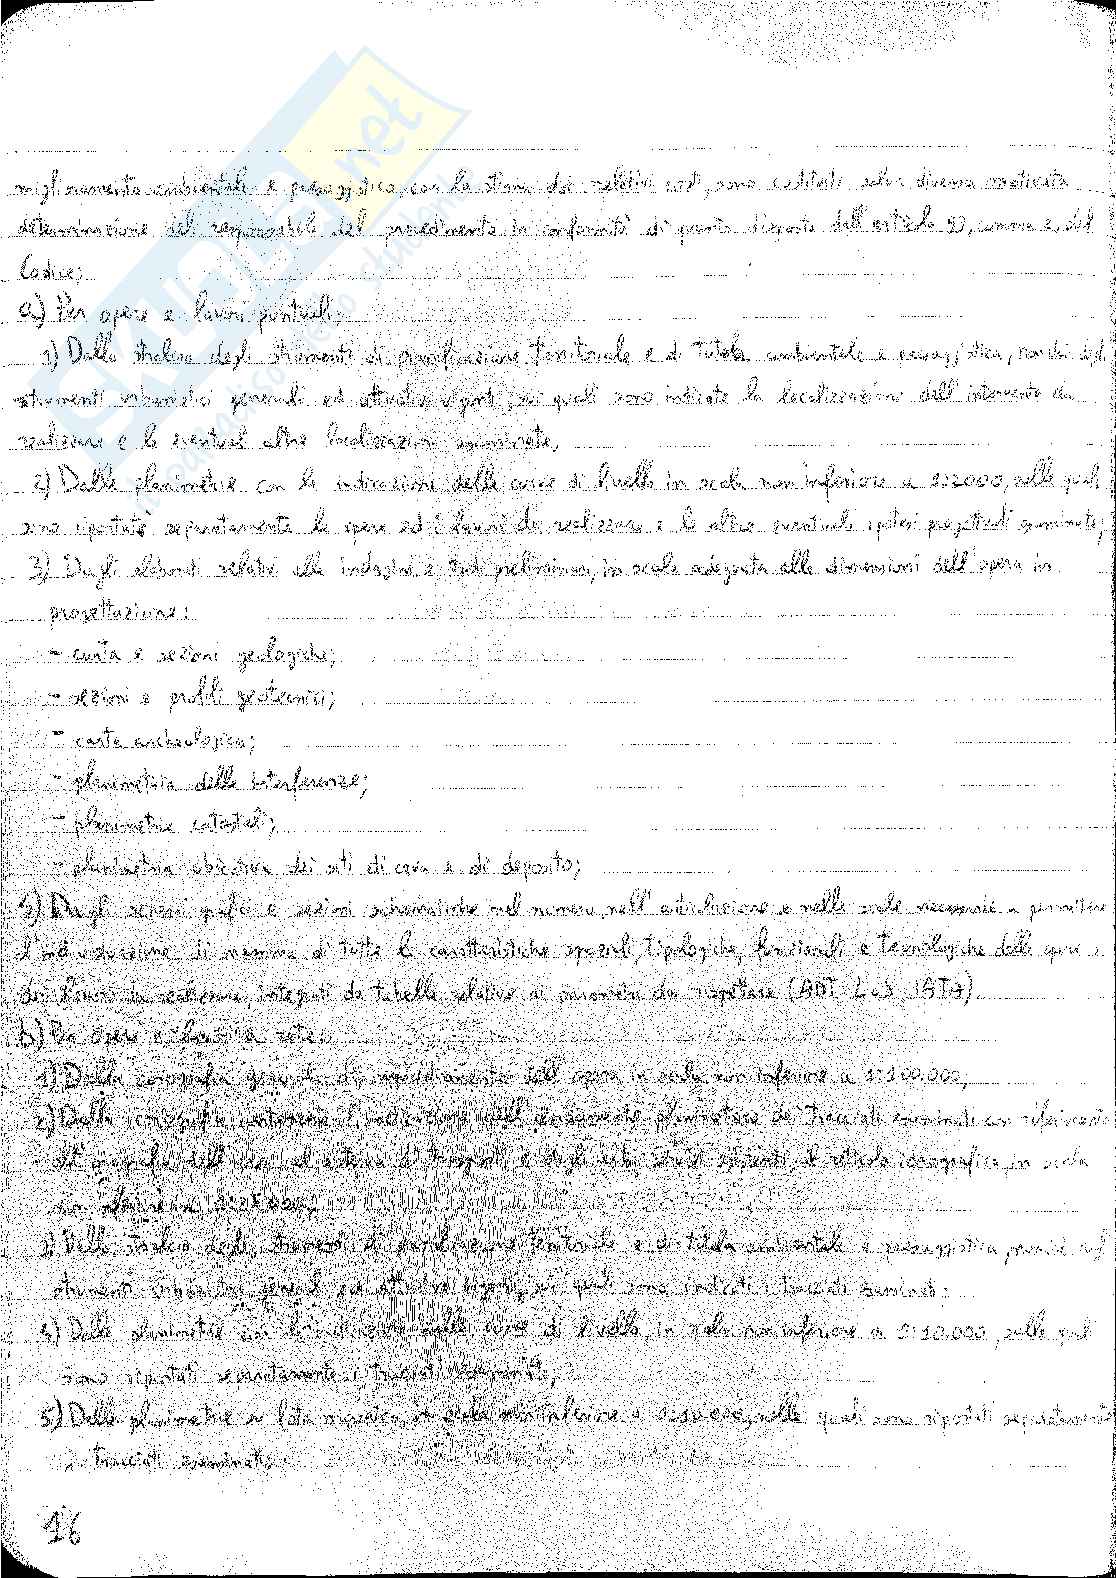 miglioramento ambientale e paesaggistico, con la stima dei relativi costi, sono costituiti salva diversa motivata
determinazione del responsabile del procedimento in conformità di quanto disposto dall'articolo 93, comma 2, del
Codice;
a) Per opere e lavori puntuali:
1) Dallo stralcio degli strumenti di pianificazione territoriale e di tutela ambientale e paesaggistica, nonchè degli
strumenti urbanistici generali ed attuativi vigenti, sui quali sono indicate la localizzazione dell'intervento da
realizzare e le eventuali altre localizzazioni esaminate;
2) Dalle planimetrie con le indicazioni delle curve di livello in scala non inferiore a 1:2000, sulle quali
sono riportati separatamente le opere ed i lavori da realizzare e le altre eventuali ipotesi progettuali esaminate;
3) Dagli elaborati relativi alle indagini e studi preliminari, in scala adeguata alle dimensioni dell'opera in
progettazione:
- carta e sezioni geologiche;
- sezioni e profili geotecnici;
- carta archeologica;
- planimetria delle interferenze;
- planimetrie catastali;
- planimetria ubicativa dei siti di cava e di deposito;
4) Dagli schemi grafici e sezioni schematiche nel numero, nell'articolazione e nelle scale necessarie a permettere
l'individuazione di massima di tutte le caratteristiche spaziali, tipologiche, funzionali e tecnologiche delle opere e
dei lavori da realizzare, integrati da tabelle relative ai parametri da rispettare
b) Per opere e lavori a rete:
1) Dalla corografia generale di inquadramento dell'opera in scala non inferiore a 1:100.000;
2) Dalla corografia contenente l'indicazione dell'andamento planimetrico dei tracciati esaminati con riferimento
all'orografia dell'area, al sistema di trasporti e degli altri servizi esistenti, al reticolo idrografico, in scala
non inferiore a 1:25.000;
3) Dallo stralcio degli strumenti di pianificazione territoriale e di tutela ambientale e paesaggistica, nonchè degli
strumenti urbanistici generali ed attuativi vigenti, sui quali sono indicati i tracciati esaminati;
4) Dalle planimetrie con le indicazioni delle curve di livello, in scala non inferiore a 1:10.000, sulle quali
sono riportati separatamente i tracciati esaminati;
5) Dalle planimetrie su foto mosaico, in scala non inferiore a 1:10.000, sulle quali sono riportati separatamente
i tracciati esaminati.
16
SKUOLA.net